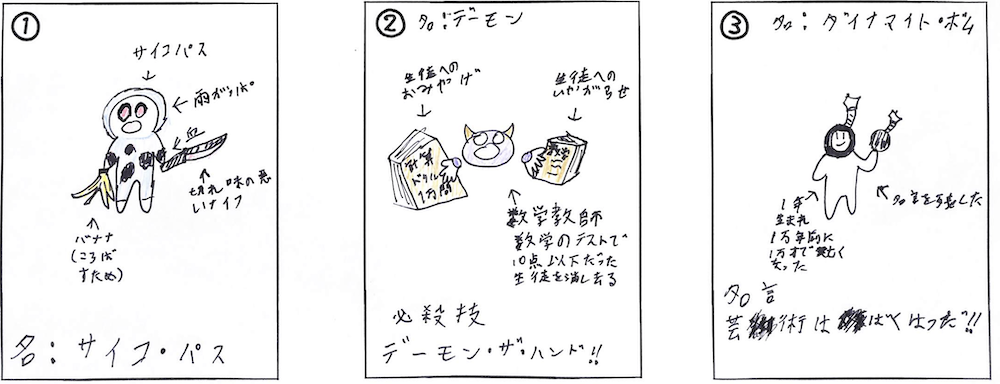 ①
サイコパス
雨がっぱ
血
切れ味の悪
いナイフ
バナナ
(ころば
すため)
名:サイコ・パス
②
名:デーモン
生徒への
おみやげ
生徒への
いやがらせ
計算
ドリル
1万問
数学
数学教師
数学のテストで
10点以下だった
生徒を消し去る
必殺技
デーモン・ザ・ハンド!!
③
名:ダイナマイト・ボム
1年
生まれ
1万年前に
名言を可意した
名言
芸術は ばくはつだ!!